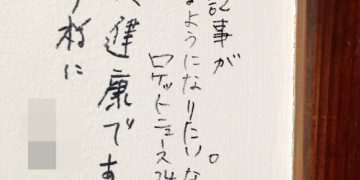 記事が
るようになりたいな。
ロケットニュース24
健康であ
様に